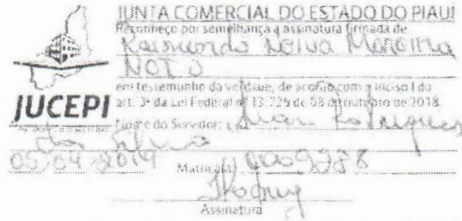 JUNTA COMERCIAL DO ESTADO DO PIAUÍ
Reconheço por semelhança a assinatura firmada de
Raimundo Neiva Moreira
NETO
em testemunho da verdade, de acordo com o inciso I do
art. 3º da Lei Federal nº 13.726 de 08 de outubro de 2018.
JUCEPI
Nome do Servidor: Juan Rodrigues
da Silva
05/04/2019 Matrícula:
Assinatura